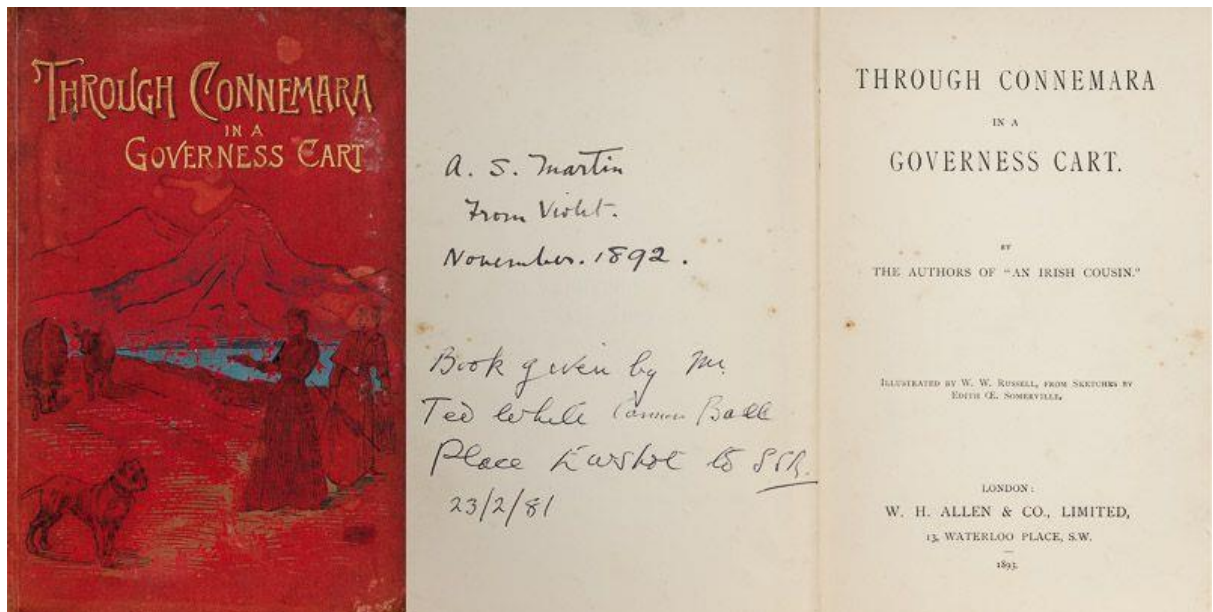 THROUGH CONNEMARA
IN A
GOVERNESS CART
A. S. Martin
From Violet.
November. 1892.
Book given by Mr
Ted While Cannon Ball
Place Ewshot to
23/2/81
THROUGH CONNEMARA
IN A
GOVERNESS CART.
BY
THE AUTHORS OF "AN IRISH COUSIN."
ILLUSTRATED BY W. W. RUSSELL, FROM SKETCHES BY
EDITH Œ. SOMERVILLE.
LONDON:
W. H. ALLEN & CO., LIMITED,
13, WATERLOO PLACE, S.W.
1893.